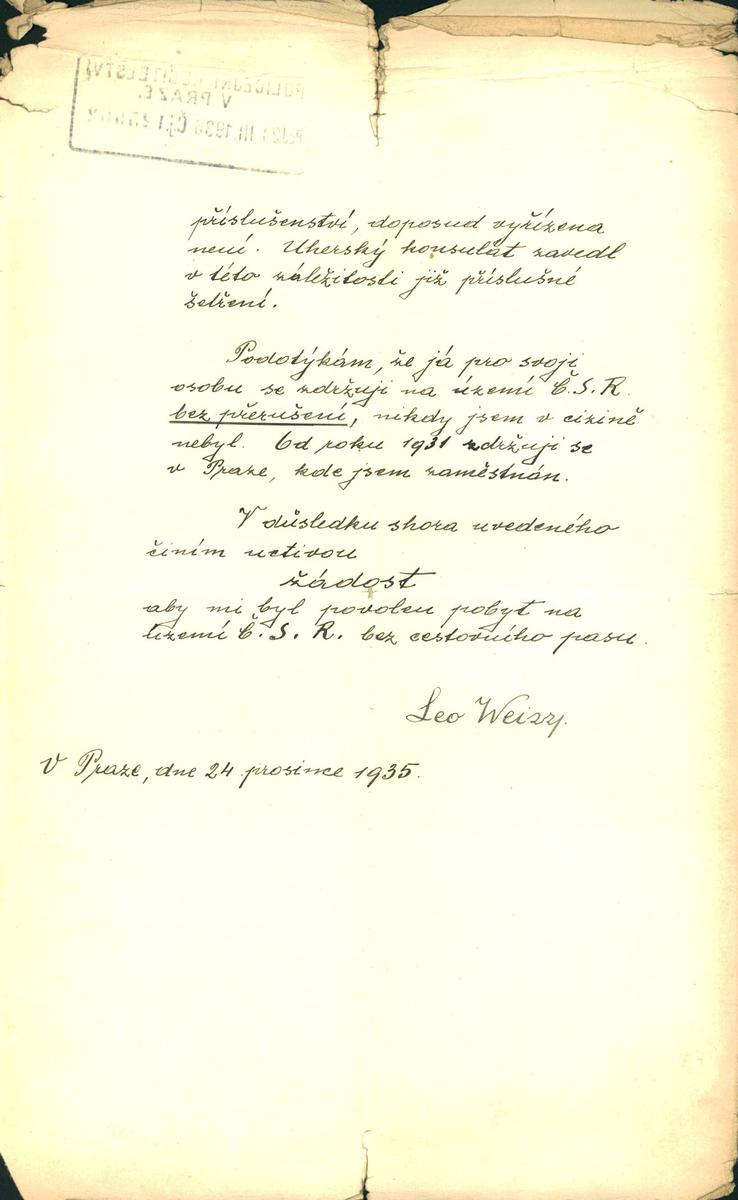 POLICEJNÍ ŘEDITELSTVÍ
V PRAZE.
III. 1936
příslušenství, doposud vyřízena
není. Uherský konsulát zavedl
v této záležitosti již příslušné
šetření.
Podotýkám, že já pro svoji
osobu se zdržuji na území Č.S.R.
bez přerušení, nikdy jsem v cizině
nebyl. Od roku 1931 zdržuji se
v Praze, kde jsem zaměstnán.
V důsledku shora uvedeného
činím uctivou
žádost
aby mi byl povolen pobyt na
území Č.S.R. bez cestovního pasu.
Leo Weisz.
V Praze, dne 24 prosince 1935.